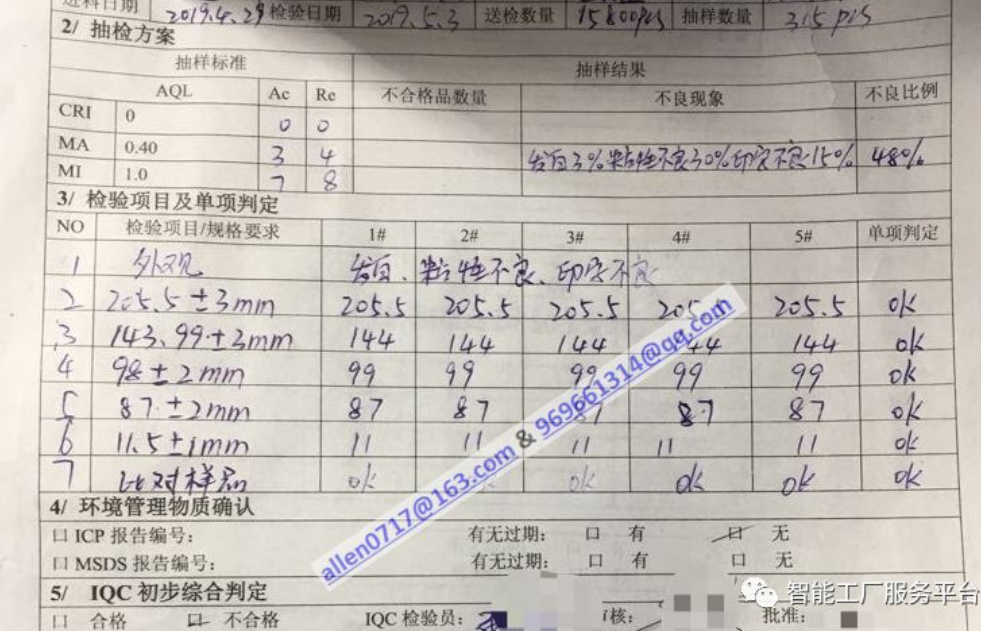 进料日期 2019.4.29 检验日期 2019.5.3 送检数量 15800pcs 抽样数量 315 pcs
2/ 抽检方案
抽样标准 抽样结果
AQL Ac Re 不合格品数量 不良现象 不良比例
CRI 0 0 0
MA 0.40 3 4 发白3% 粘性不良30% 印字不良15% 48%
MI 1.0 7 8
3/ 检验项目及单项判定
NO 检验项目/规格要求 1# 2# 3# 4# 5# 单项判定
1 外观 发白、粘性不良、印字不良
2 205.5±3mm 205.5 205.5 205.5 205.5 ok
3 143.99±3mm 144 144 144 144 144 ok
4 98±2mm 99 99 99 99 99 ok
5 87±2mm 87 87 87 87 87 ok
6 11.5±1mm 11 11 11 11 11 ok
7 比对样品 ok ok ok ok ok
4/ 环境管理物质确认
口 ICP 报告编号: 有无过期: 口 有 口 无
口 MSDS 报告编号: 有无过期: 口 有 口 无
5/ IQC 初步综合判定
口 合格 口 不合格 IQC 检验员: 核: 批准:
allen0717@163.com & 969661314@qq.com
智能工厂服务平台